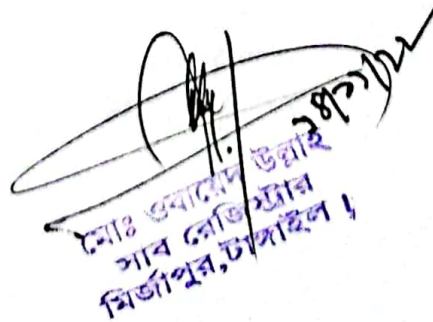 মোঃ ওবায়েদ উল্লাহ
সাব রেজিস্ট্রার
মির্জাপুর, টাঙ্গাইল।